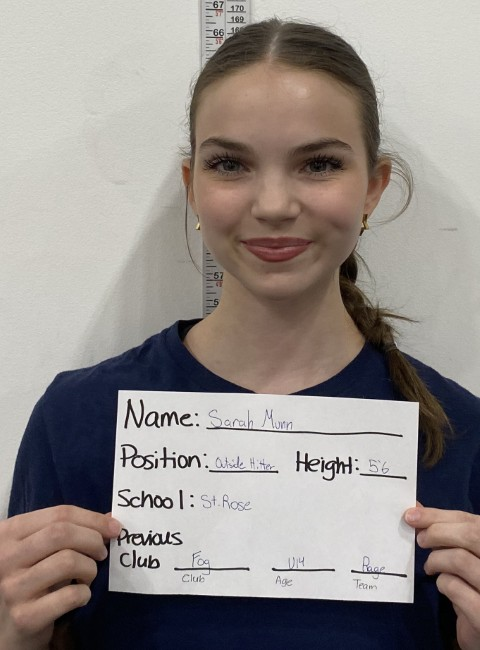 67
170
169
66
168
57
Name: Sarah Munn
Position: Outside Hitter Height: 5'6
School: St. Rose
Previous
Club Fog U14 Rage
Club Age Team